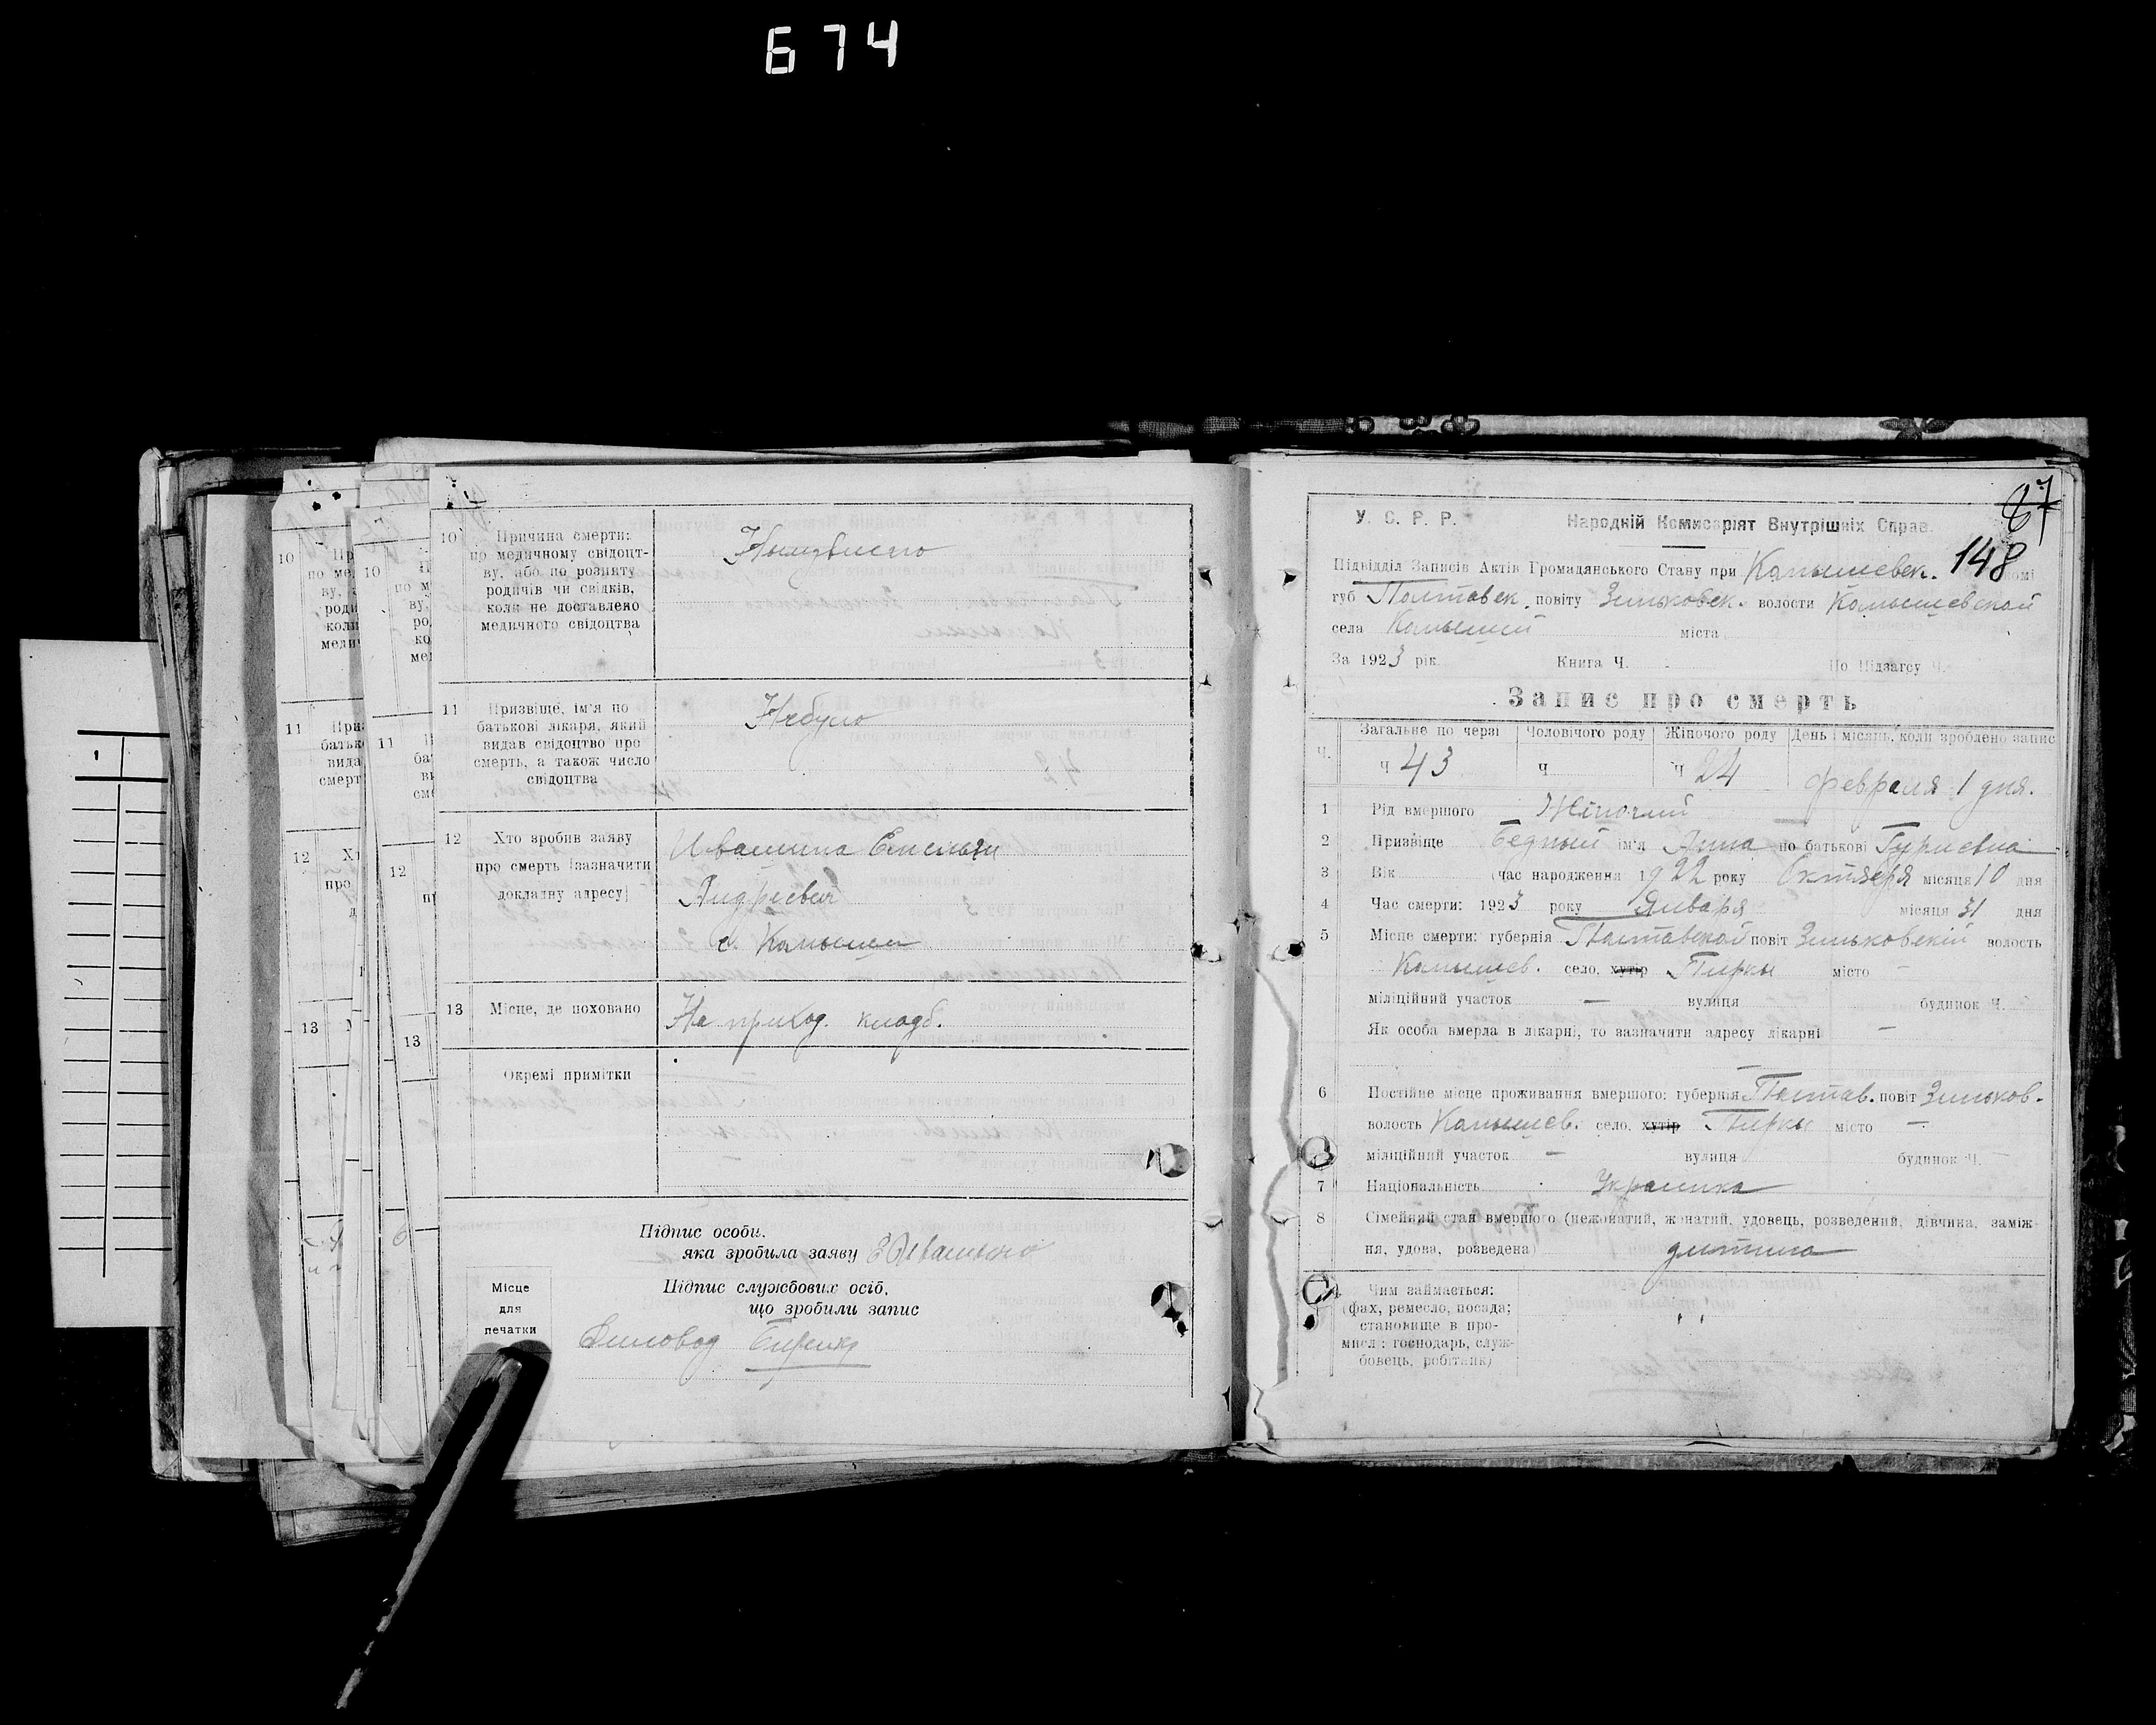 674
10 Причина смерти:
по медичному свідоцт-
ву, або по розняту
родичів чи свідків,
коли не доставлено
медичного свідоцтва
11 Призвіще, ім'я по
батькові лікаря, який
видав свідоцтво про
смерть, а також число
свідоцтва
Небуло
12 Хто зробив заяву
про смерть (зазначити
докладну адресу)
Ивашина Емельян
Андреевич
с. Камыши
13 Місце, де поховано
На приход. кладб.
Окремі примітки
Підпис особи,
яка зробила заяву
Підпис службових осіб,
що зробили запис
Місце
для
печатки
Діловод
67
148
У. С. Р. Р. Народній Комісаріят Внутрішніх Справ.
Підвідділ Записів Актів Громадянського Стану при Камышевск.
губ Полтавск. повіту Зиньковск. волости Камышевской
села Камыши міста
За 1923 рік. Книга Ч. По Підзагсу Ч.
Запис про смерть
Ч. Загальне по черзі Чоловічого роду Жіночого роду День і місяць, коли зроблено запис
Ч 43 Ч Ч 24 февраля 1 дня.
1 Рід вмершого Жіночий
2 Призвіще Бедный ім'я Анна по батькові Гуриевна
3 Вік (час народження 1922 року Октября місяця 10 дня
4 Час смерти: 1923 року Января місяця 31 дня
5 Місце смерти: губернія Полтавской повіт Зиньковский волость
Камышев. село, хутір Пирки місто —
міліційний участок — вулиця будинок Ч.
Як особа вмерла в лікарні, то зазначити адресу лікарні —
6 Постійне місце проживання вмершого: губернія Полтав. повіт Зиньков.
волость Камышев. село, хутір Пирки місто —
міліційний участок — вулиця будинок Ч. —
7 Національність Украинка
8 Сімейний стан вмершого (нежонатий, жонатий, удовець, розведений, дівчина, заміж-
ня, удова, розведена) дитина
Чим займається:
(фах, ремесло, посада;
становище в про-
мислі: господарь, служ-
бовець, робітник)